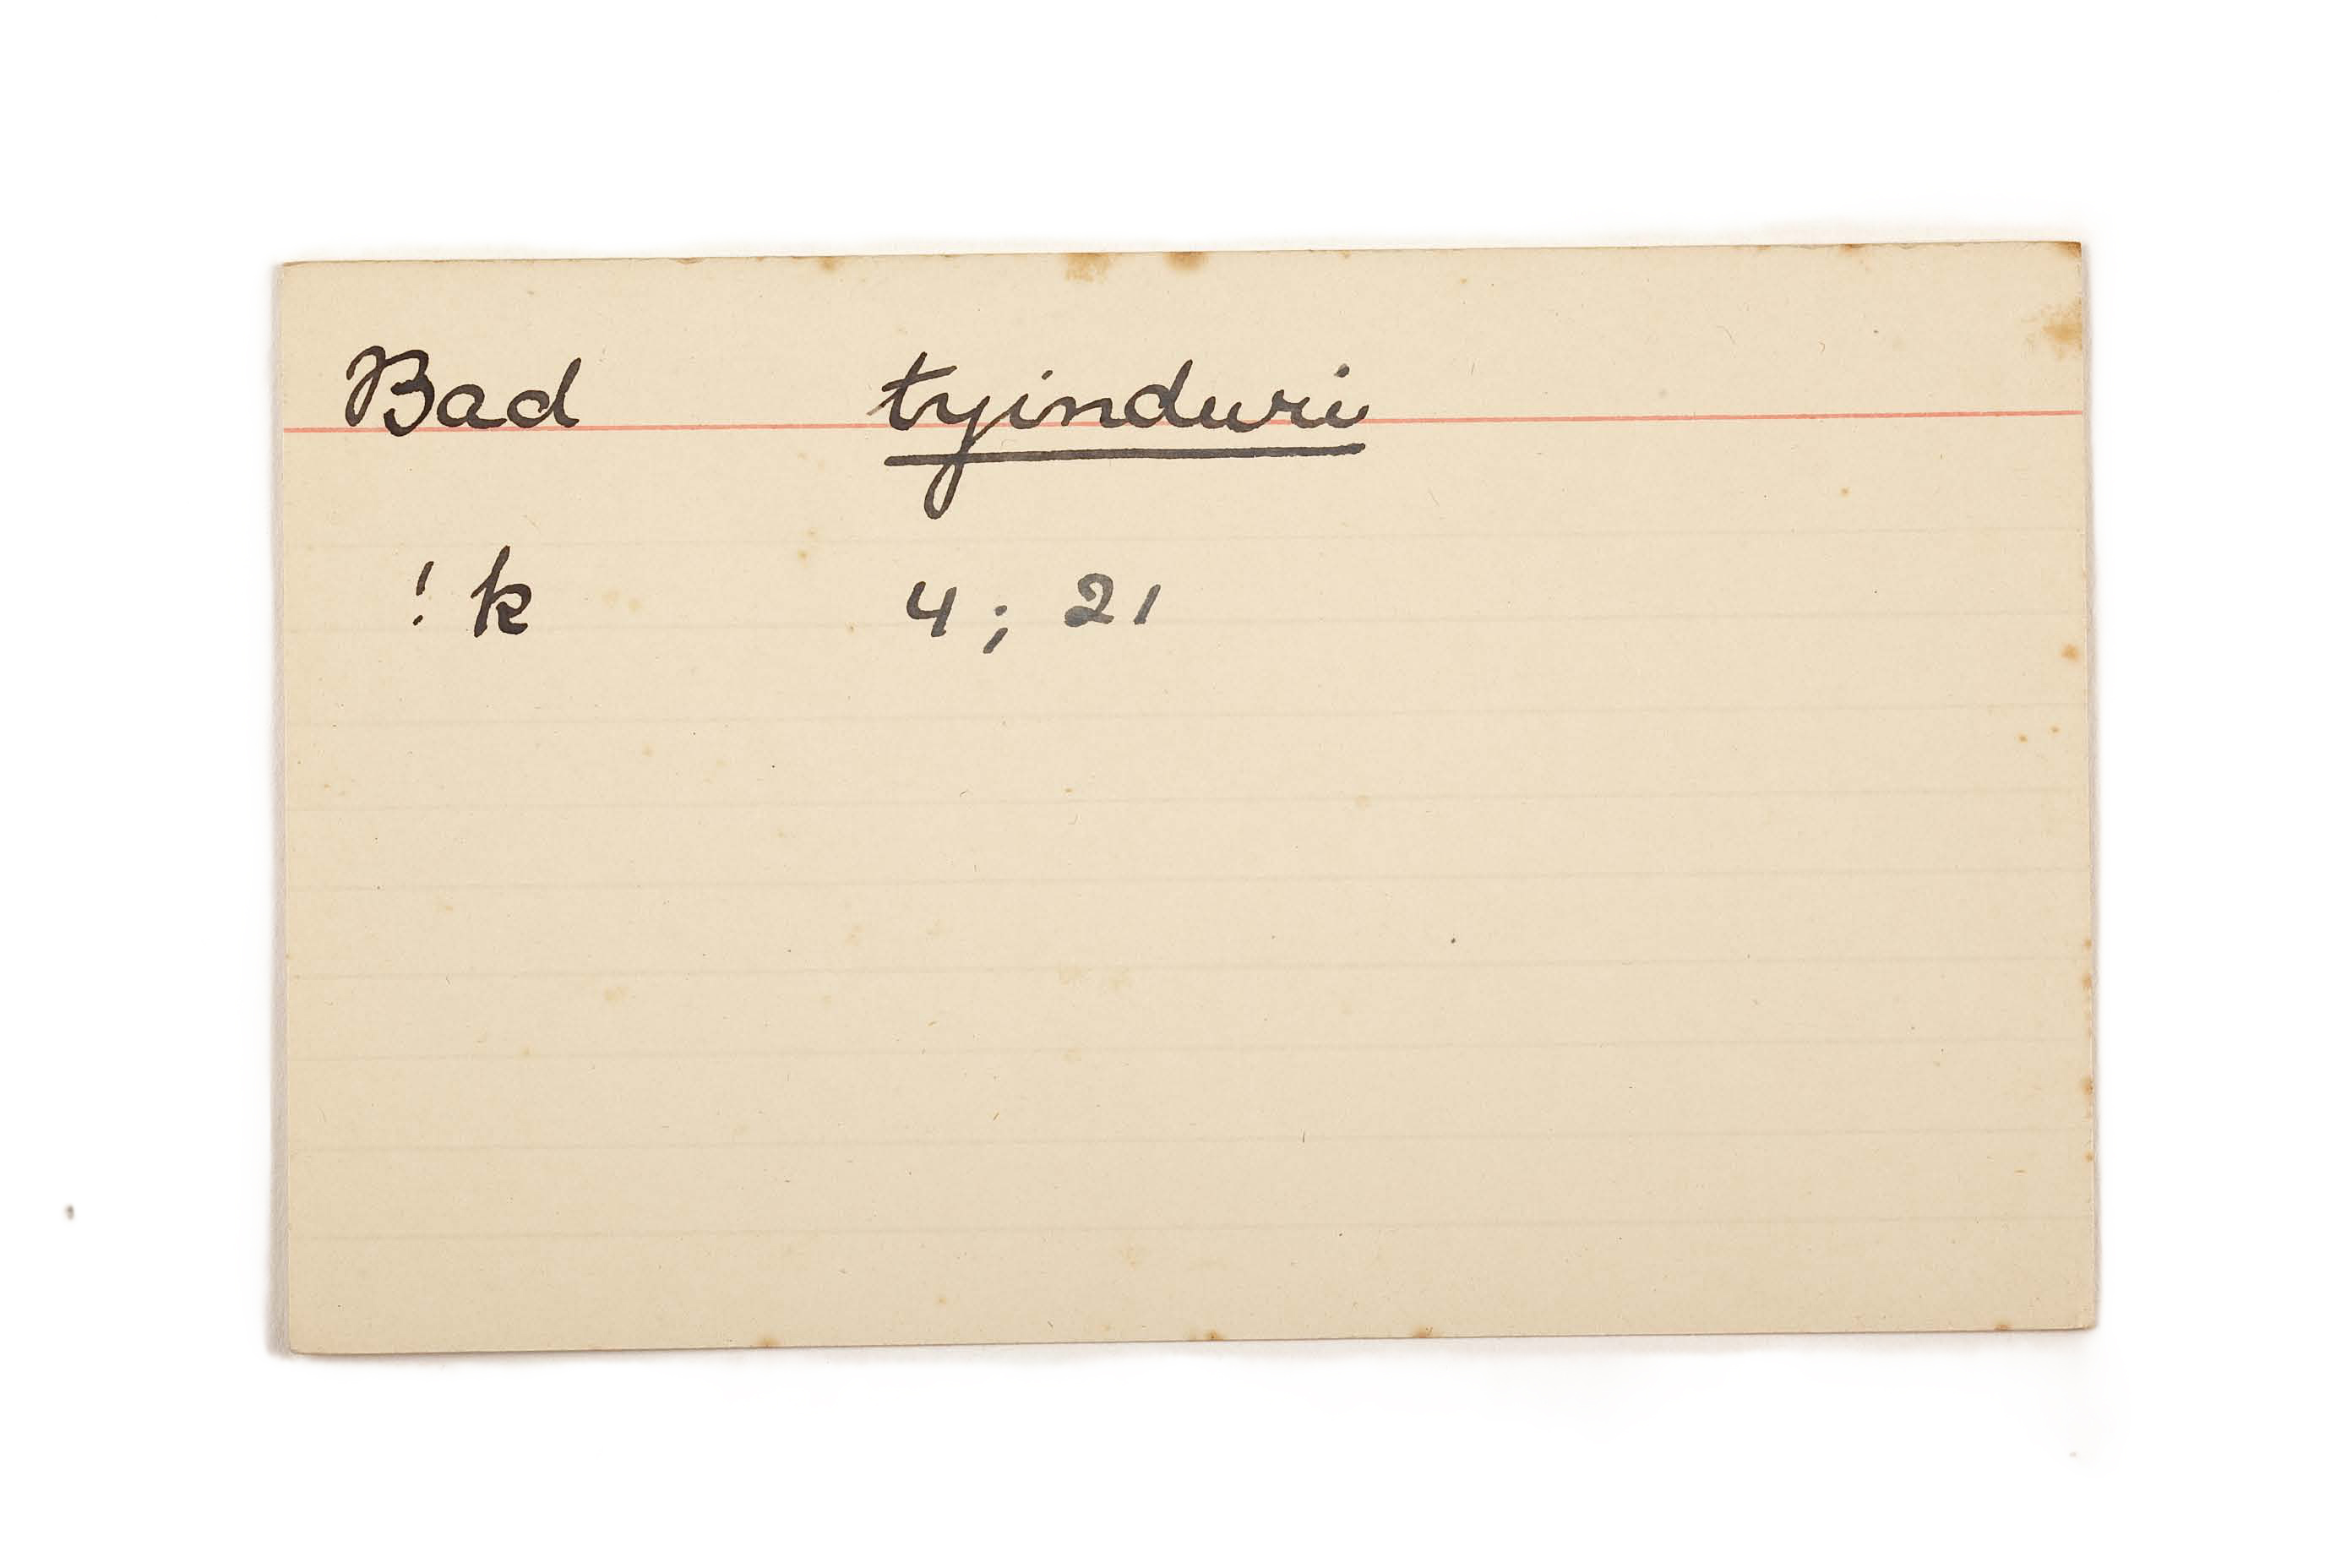 Bad tyinduri
! k 4; 21